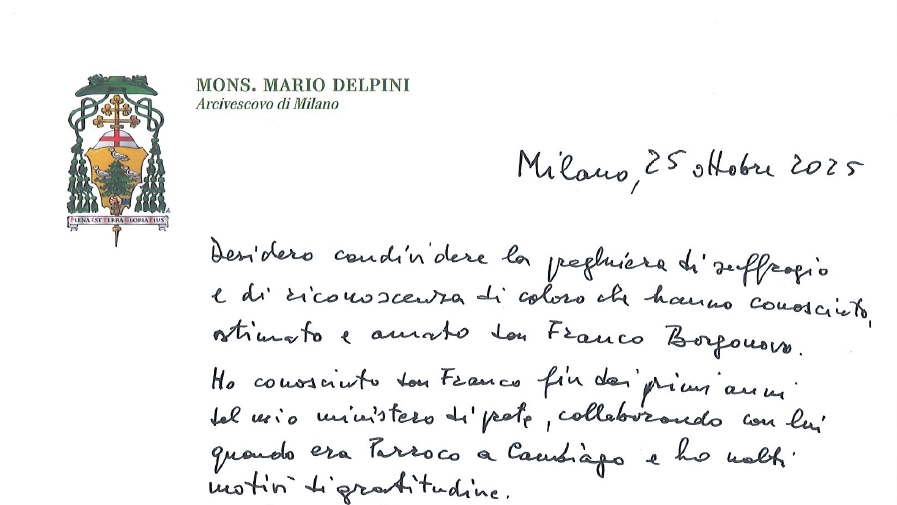 MONS. MARIO DELPINI
Arcivescovo di Milano
PLENA EST TERRA GLORIA EIUS
Milano, 25 ottobre 2025
Desidero condividere la preghiera di suffragio
e di riconoscenza di coloro che hanno conosciuto,
stimato e amato don Franco Borgonovo.
Ho conosciuto don Franco fin dai primi anni
del mio ministero di prete, collaborando con lui
quando era Parroco a Cambiago e ho molti
motivi di gratitudine.